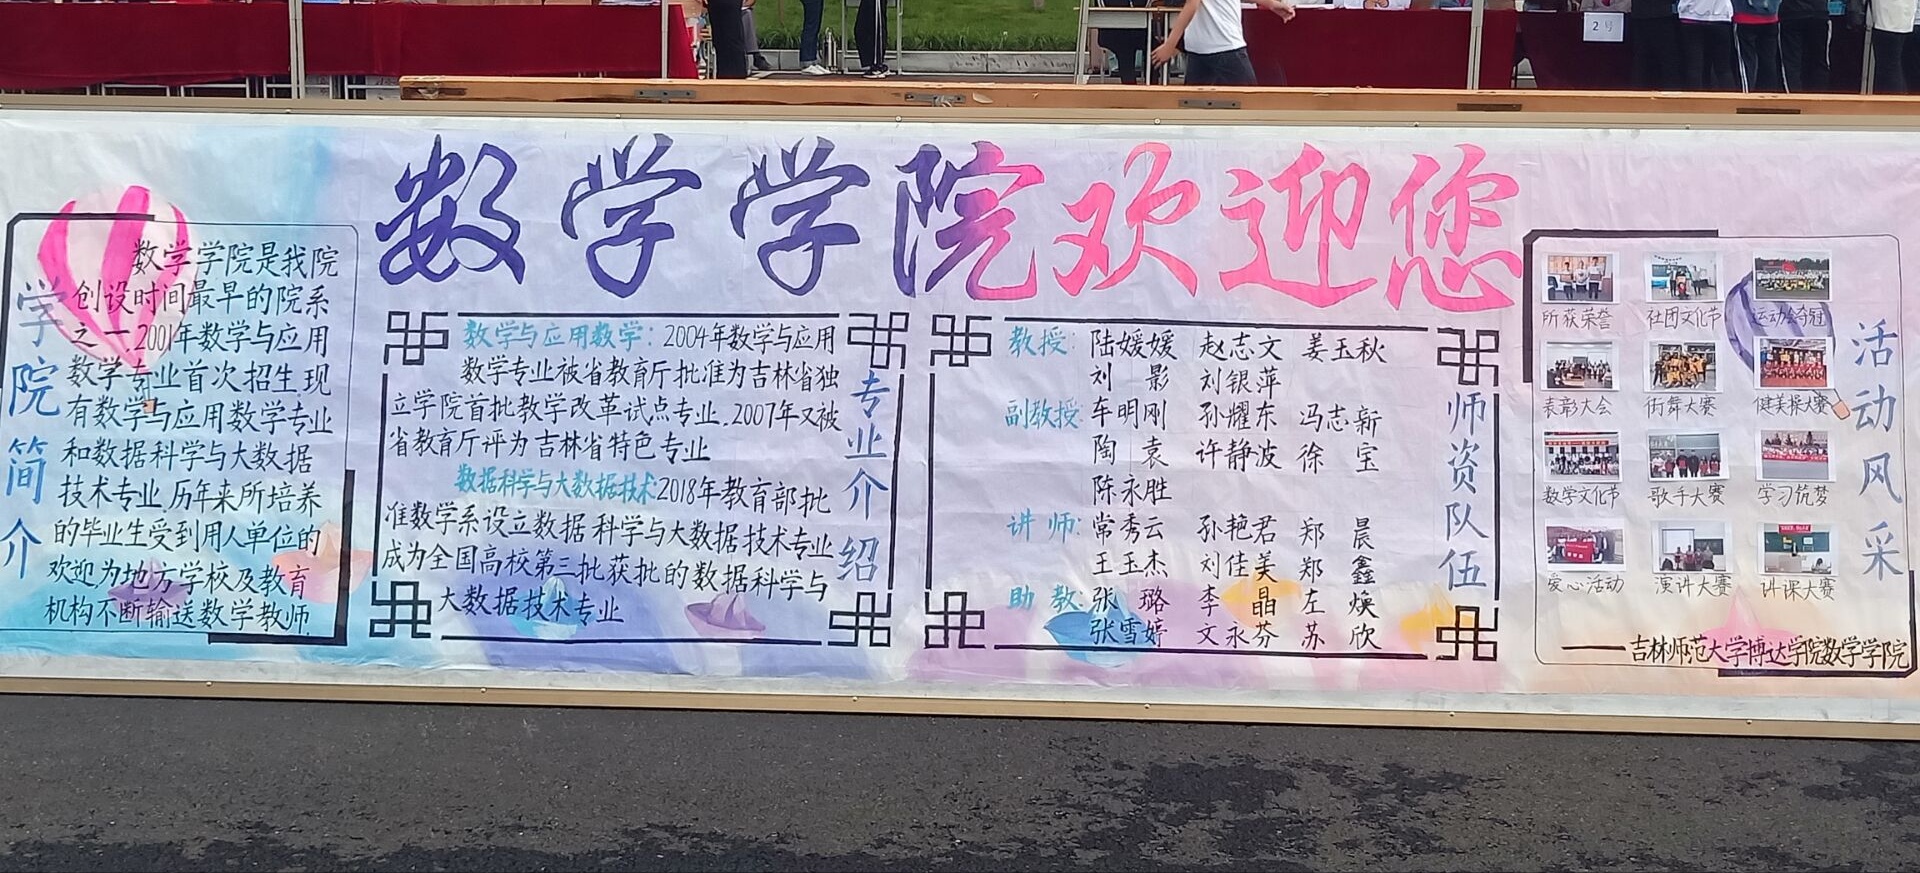 2号
数学学院欢迎您
学院简介
数学学院是我院
创设时间最早的院系
之一.2001年数学与应用
数学专业首次招生.现
有数学与应用数学专业
和数据科学与大数据
技术专业.历年来所培养
的毕业生受到用人单位的
欢迎为地方学校及教育
机构不断输送数学教师.
专业介绍
数学与应用数学：2004年数学与应用
数学专业被省教育厅批准为吉林省独
立学院首批教学改革试点专业.2007年又被
省教育厅评为吉林省特色专业
数据科学与大数据技术2018年教育部批
准数学系设立数据科学与大数据技术专业
成为全国高校第三批获批的数据科学与
大数据技术专业
师资队伍
教授：陆媛媛 赵志文 姜玉秋
刘影 刘银萍
副教授：车明刚 孙耀东 冯志新
陶袁 许静波 徐宝
陈永胜
讲师：常秀云 孙艳君 郑晨
王玉杰 刘佳美 郑鑫
助教：张璐 李晶 左焕
张雪婷 文永芬 苏欣
活动风采
所获荣誉 社团文化节 运动会夺冠
表彰大会 街舞大赛 健美操大赛
数学文化节 歌手大赛 学习筑梦
爱心活动 演讲大赛 讲课大赛
——吉林师范大学博达学院数学学院